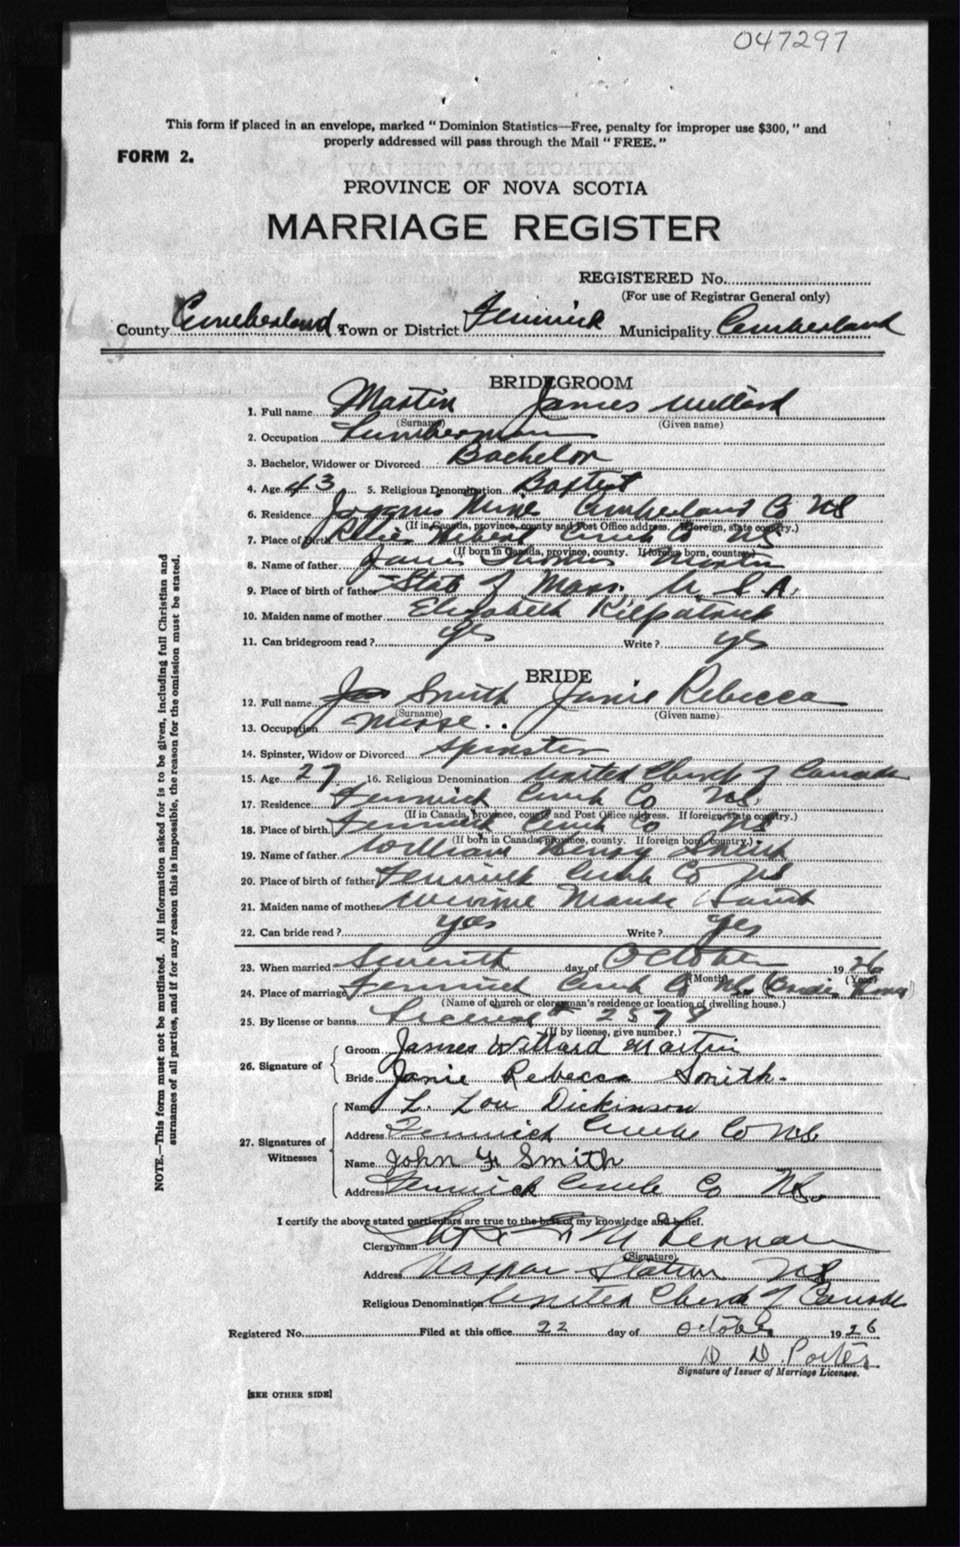 047297
This form if placed in an envelope, marked "Dominion Statistics—Free, penalty for improper use $300," and
properly addressed will pass through the Mail "FREE."
FORM 2.
PROVINCE OF NOVA SCOTIA
MARRIAGE REGISTER
REGISTERED No.
(For use of Registrar General only)
County Cumberland Town or District Fenwick Municipality Cumberland
BRIDEGROOM
1. Full name Martin James Willard
(Surname) (Given name)
2. Occupation Lumberman
3. Bachelor, Widower or Divorced Bachelor
4. Age 43 5. Religious Denomination Baptist
6. Residence Joggins Mines Cumberland Co NS
(If in Canada, province, county and Post Office address. If foreign, state country.)
7. Place of Birth River Hebert Cumb Co NS
(If born in Canada, province, county. If foreign born, country.)
8. Name of father James Thomas Martin
9. Place of birth of father State of Mass. U. S. A.
10. Maiden name of mother Elizabeth Kilpatrick
11. Can bridegroom read? yes Write? yes
BRIDE
12. Full name Smith Janie Rebecca
(Surname) (Given name)
13. Occupation Nurse
14. Spinster, Widow or Divorced Spinster
15. Age 27 16. Religious Denomination United Church of Canada
17. Residence Fenwick Cumb Co NS.
(If in Canada, province, county and Post Office address. If foreign state country.)
18. Place of birth Fenwick Cumb Co NS
(If born in Canada, province, county. If foreign born, country.)
19. Name of father William Henry Smith
20. Place of birth of father Fenwick Cumb Co NS
21. Maiden name of mother Maude Smith
22. Can bride read? yes Write? yes
23. When married Seventh day of October 1926
(Month) (Year)
24. Place of marriage Fenwick Cumb Co NS. (Brides Home)
(Name of church or clergyman's residence or location of dwelling house.)
25. By license or banns License # 2579
(If by license, give number.)
26. Signature of Groom James Willard Martin
Bride Janie Rebecca Smith
27. Signatures of Witnesses
Name L. Lou Dickinson
Address Fenwick Cumb Co NS
Name John Smith
Address Fenwick Cumb Co NS.
I certify the above stated particulars are true to the best of my knowledge and belief.
Clergyman
(Signature)
Address Nappan Station NS
Religious Denomination United Church of Canada
Registered No. Filed at this office 22 day of October 1926
D D. Porter
Signature of Issuer of Marriage Licenses.
[SEE OTHER SIDE]
NOTE.—This form must not be mutilated. All information asked for is to be given, including full Christian and
surnames of all parties, and if for any reason this is impossible, the reason for the omission must be stated.